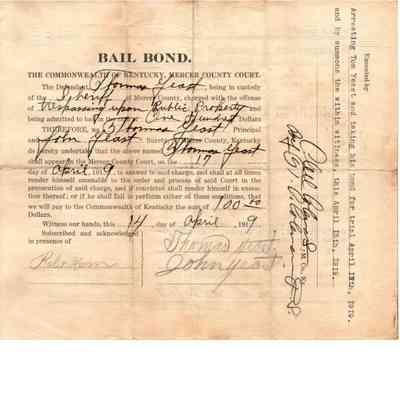 BAIL BOND.
THE COMMONWEALTH OF KENTUCKY, MERCER COUNTY COURT.
The Defendant, Thomas Yeast, being in custody
of the Sheriff of Mercer County, charged with the offense
of trespassing upon Public Property
and being admitted to bail in One Hundred Dollars
THEREFORE, We Thomas Yeast, Principal
and John Yeast, Surety
do hereby undertake that the above named Thomas Yeast
shall appear in the Mercer County Court, on the 17
day of April, 1919, to answer to said charge, and shall at all times
render himself amenable to the order and process of said Court in the
prosecution of said charge, and if convicted shall render himself in execu-
tion thereof; or if he shall fail to perform either of these conditions, that
we will pay to the Commonwealth of Kentucky the sum of 100.00
Dollars.
Witness our hands, this 14 day of April 1919
Subscribed and acknowledged
in presence of
Thomas Yeast
John Yeast
Executed by
Arresting Tom Yeast and taking his bond for trial April 17th, 1919.
and by summons the within witness, this April 15th, 1919.